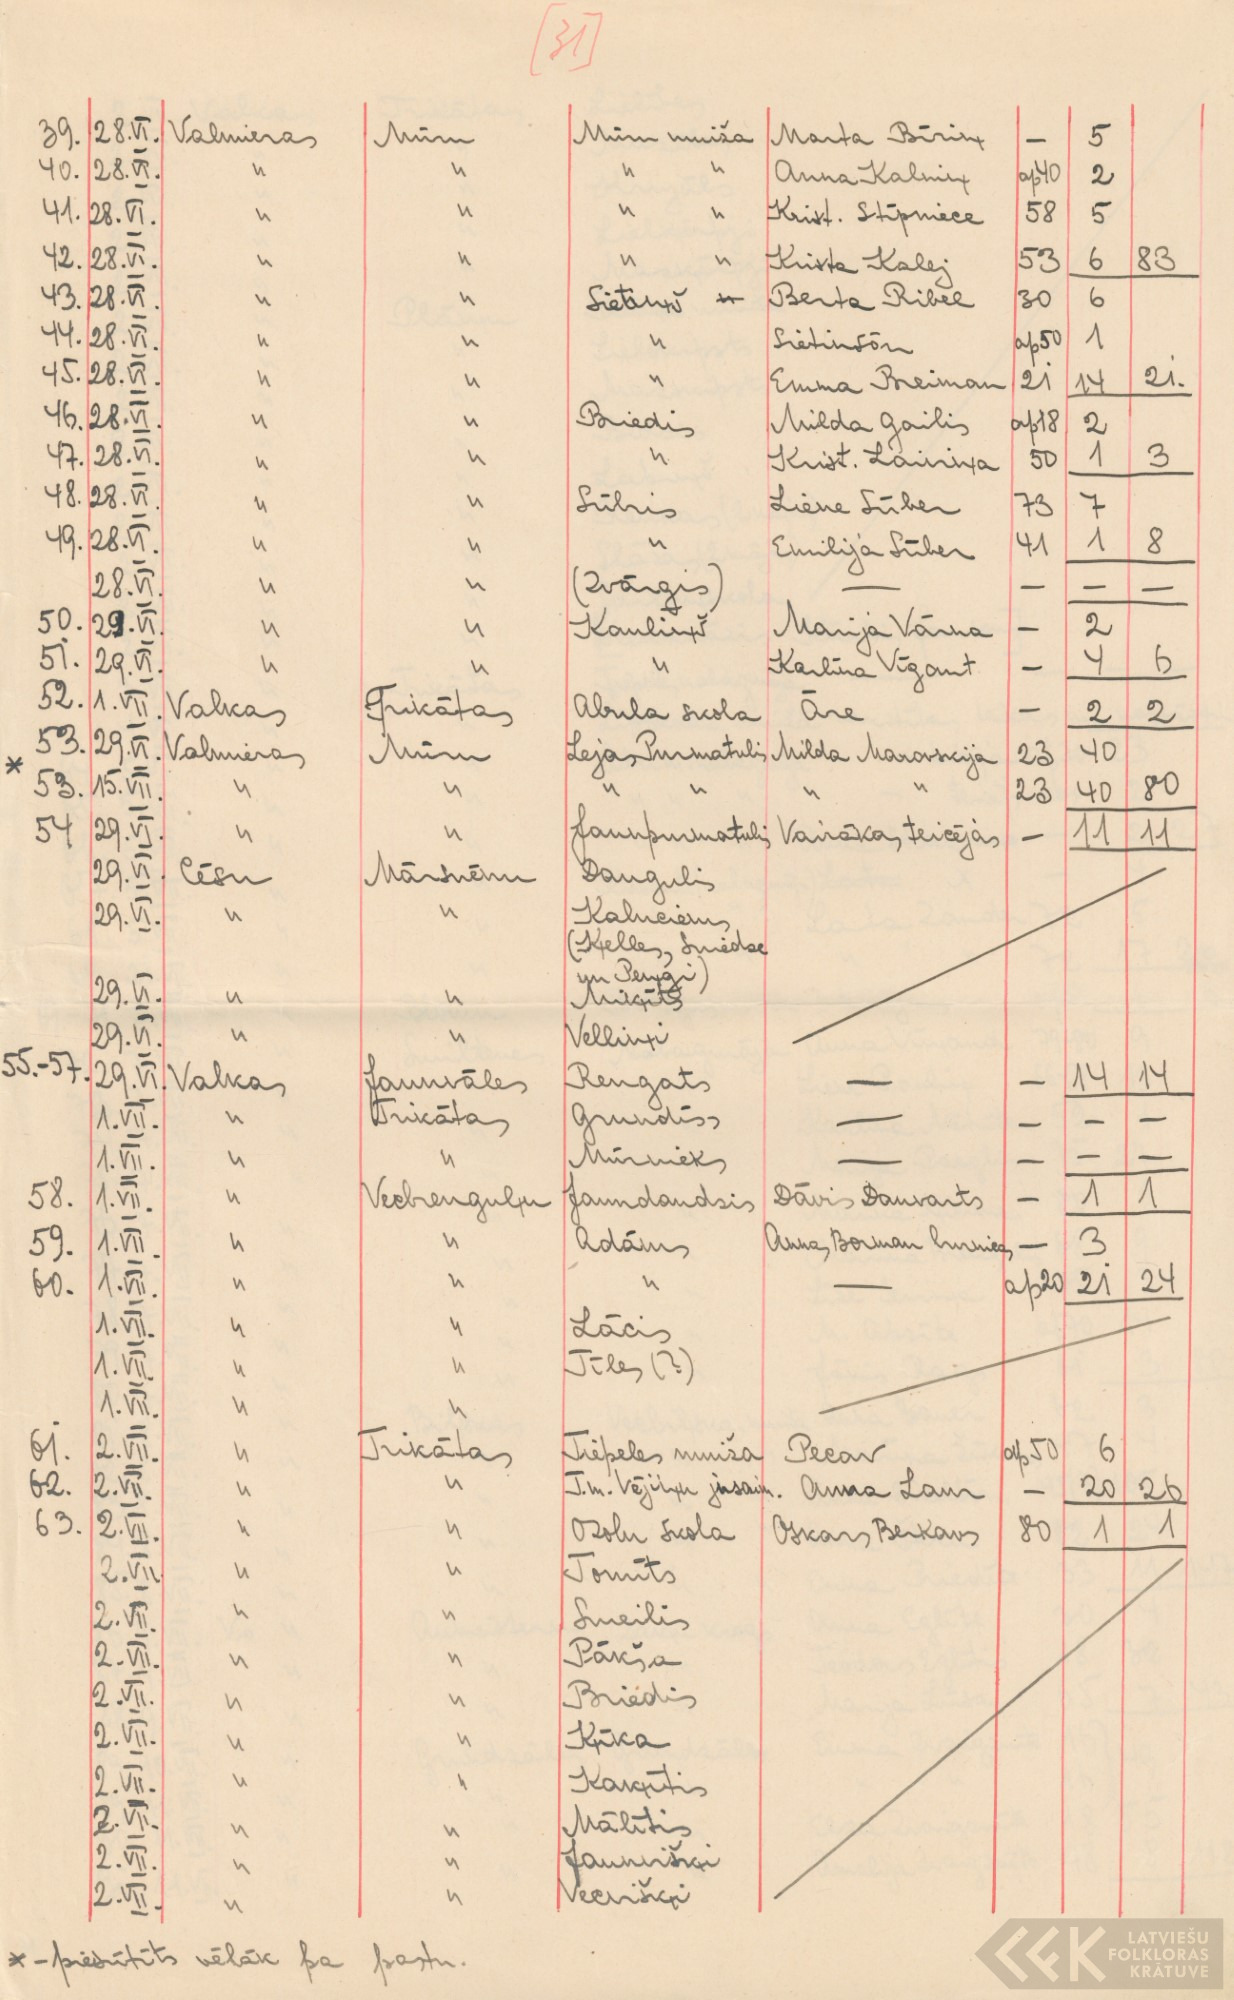 [31]
39. 28.VI. Valmieras Mūrm Mūrm muiža Marta Bīriņ — 5
40. 28.VI. " " " " Anna Kalniņ ap40 2
41. 28.VI. " " " " Krist. Stīpniece 58 5
42. 28.VI. " " " " Krista Kalēj 53 6 83
43. 28.VI. " " Sietiņš Berta Ribel 30 6
44. 28.VI. " " " Sietinsōn ap50 1
45. 28.VI. " " " Emma Breiman 21 14 21.
46. 28.VI. " " Briedis Milda Gailis ap18 2
47. 28.VI. " " " Krist. Laiviņa 50 1 3
48. 28.VI. " " Sūbris Liene Sūber 73 7
49. 28.VI. " " " Emilija Sūber 41 1 8
28.VI. " " (Zvārgis) — — — —
50. 29.VI. " " Kauliņš Marija Vārna — 2
51. 29.VI. " " " Karlīna Vīgant — 4 6
52. 1.VII. Valkas Trikātas Abula skola Āre — 2 2
53. 29.VI. Valmieras Mūrm Lejas Purmatulis Milda Marovskija 23 40
* 53. 15.VII. " " " " " " 23 40 80
54 29.VI. " " Jaunpurmatulis Vairākas teicējas — 11 11
29.VI. Cēsu Mārsnēnu Daugulis
29.VI. " " Kalnciems
(Ķelles, Smēdse
un Peņģi)
29.VI. " " Miķīts
29.VI. " " Velliņi
55.-57. 29.VI. Valkas Jaunvāles Rengats — — 14 14
1.VII. " Trikātas Grundiss — — — —
1.VII. " " Mūrnieks — — — —
58. 1.VII. " Vecbrenguļu Jaundandzis Dāvis Danvarts — 1 1
59. 1.VII. " " Adāms Anna Borman — 3
60. 1.VII. " " " — ap20 21 24
1.VII. " " Lācis
1.VII. " " Tīles (?)
1.VII. " "
61. 2.VII. " Trikātas Tiepeles muiža Pecav ap50 6
62. 2.VII. " " T.m. Vējiņu jaunsaim. Anna Laur — 20 26
63. 2.VII. " " Ozolu skola Oskars Berkavs 80 1 1
2.VII " " Tomīts
2.VII. " " Smeilis
2.VII. " " Pākša
2.VII. " " Briedis
2.VII. " " Ķīka
2.VII. " " Karķītis
2.VII. " " Mālītis
2.VII. " " Jaunviški
2.VII. " " Vecviški
* - piesūtīts vēlāk pa pastu.
LATVIEŠU
FOLKLORAS
KRĀTUVE